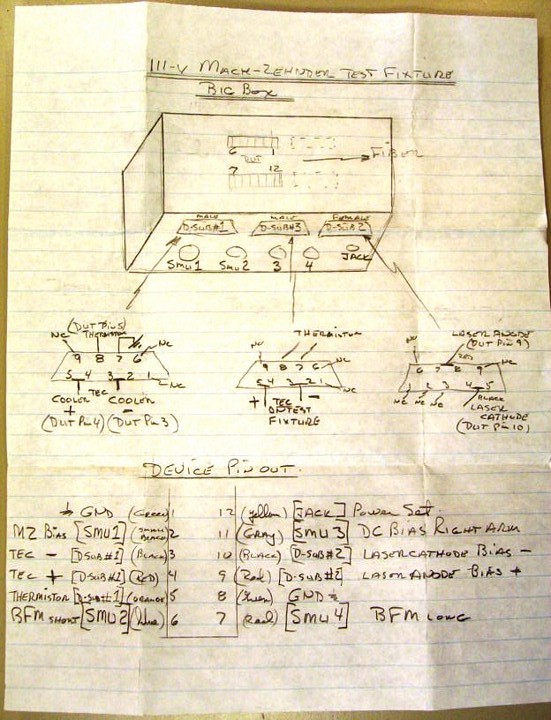 III-V MACH-ZEHNDER TEST FIXTURE
BIG BOX
6 1
DUT
7 12
FIBER
MALE MALE FEMALE
D-SUB#1 D-SUB#3 D-SUB2
SMU1 SMU2 3 4 JACK
(DUT Pin 5)
THERMISTOR
NC NC
9 8 7 6
5 4 3 2 1
NC
TEC
COOLER COOLER
+ -
(DUT Pin 4) (DUT Pin 3)
THERMISTOR
NC NC
9 8 7 6
5 4 3 2 1
NC
+ TEC -
ON TEST
FIXTURE
LASER ANODE
(DUT Pin 9)
NC RED NC
6 7 8 9
1 2 3 4 5
NC NC NC
BLACK
LASER
CATHODE
(DUT Pin 10)
DEVICE PINOUT.
GND (Green) 1 12 (yellow) [JACK] Power Set.
MZ Bias [SMU1] 2 11 (Gray) [SMU 3] DC BIAS RIGHT ARM
TEC - [DSUB#1] (Black) 3 10 (BLACK) [D-SUB#2] LASER CATHODE BIAS -
TEC + [DSUB#1] (RED) 4 9 (Red) [D-SUB#2] LASER ANODE BIAS +
THERMISTOR [D-SUB#1] (ORANGE) 5 8 (Green) GND
BFM SHORT [SMU2] (blue) 6 7 (Red) [SMU 4] BFM LONG